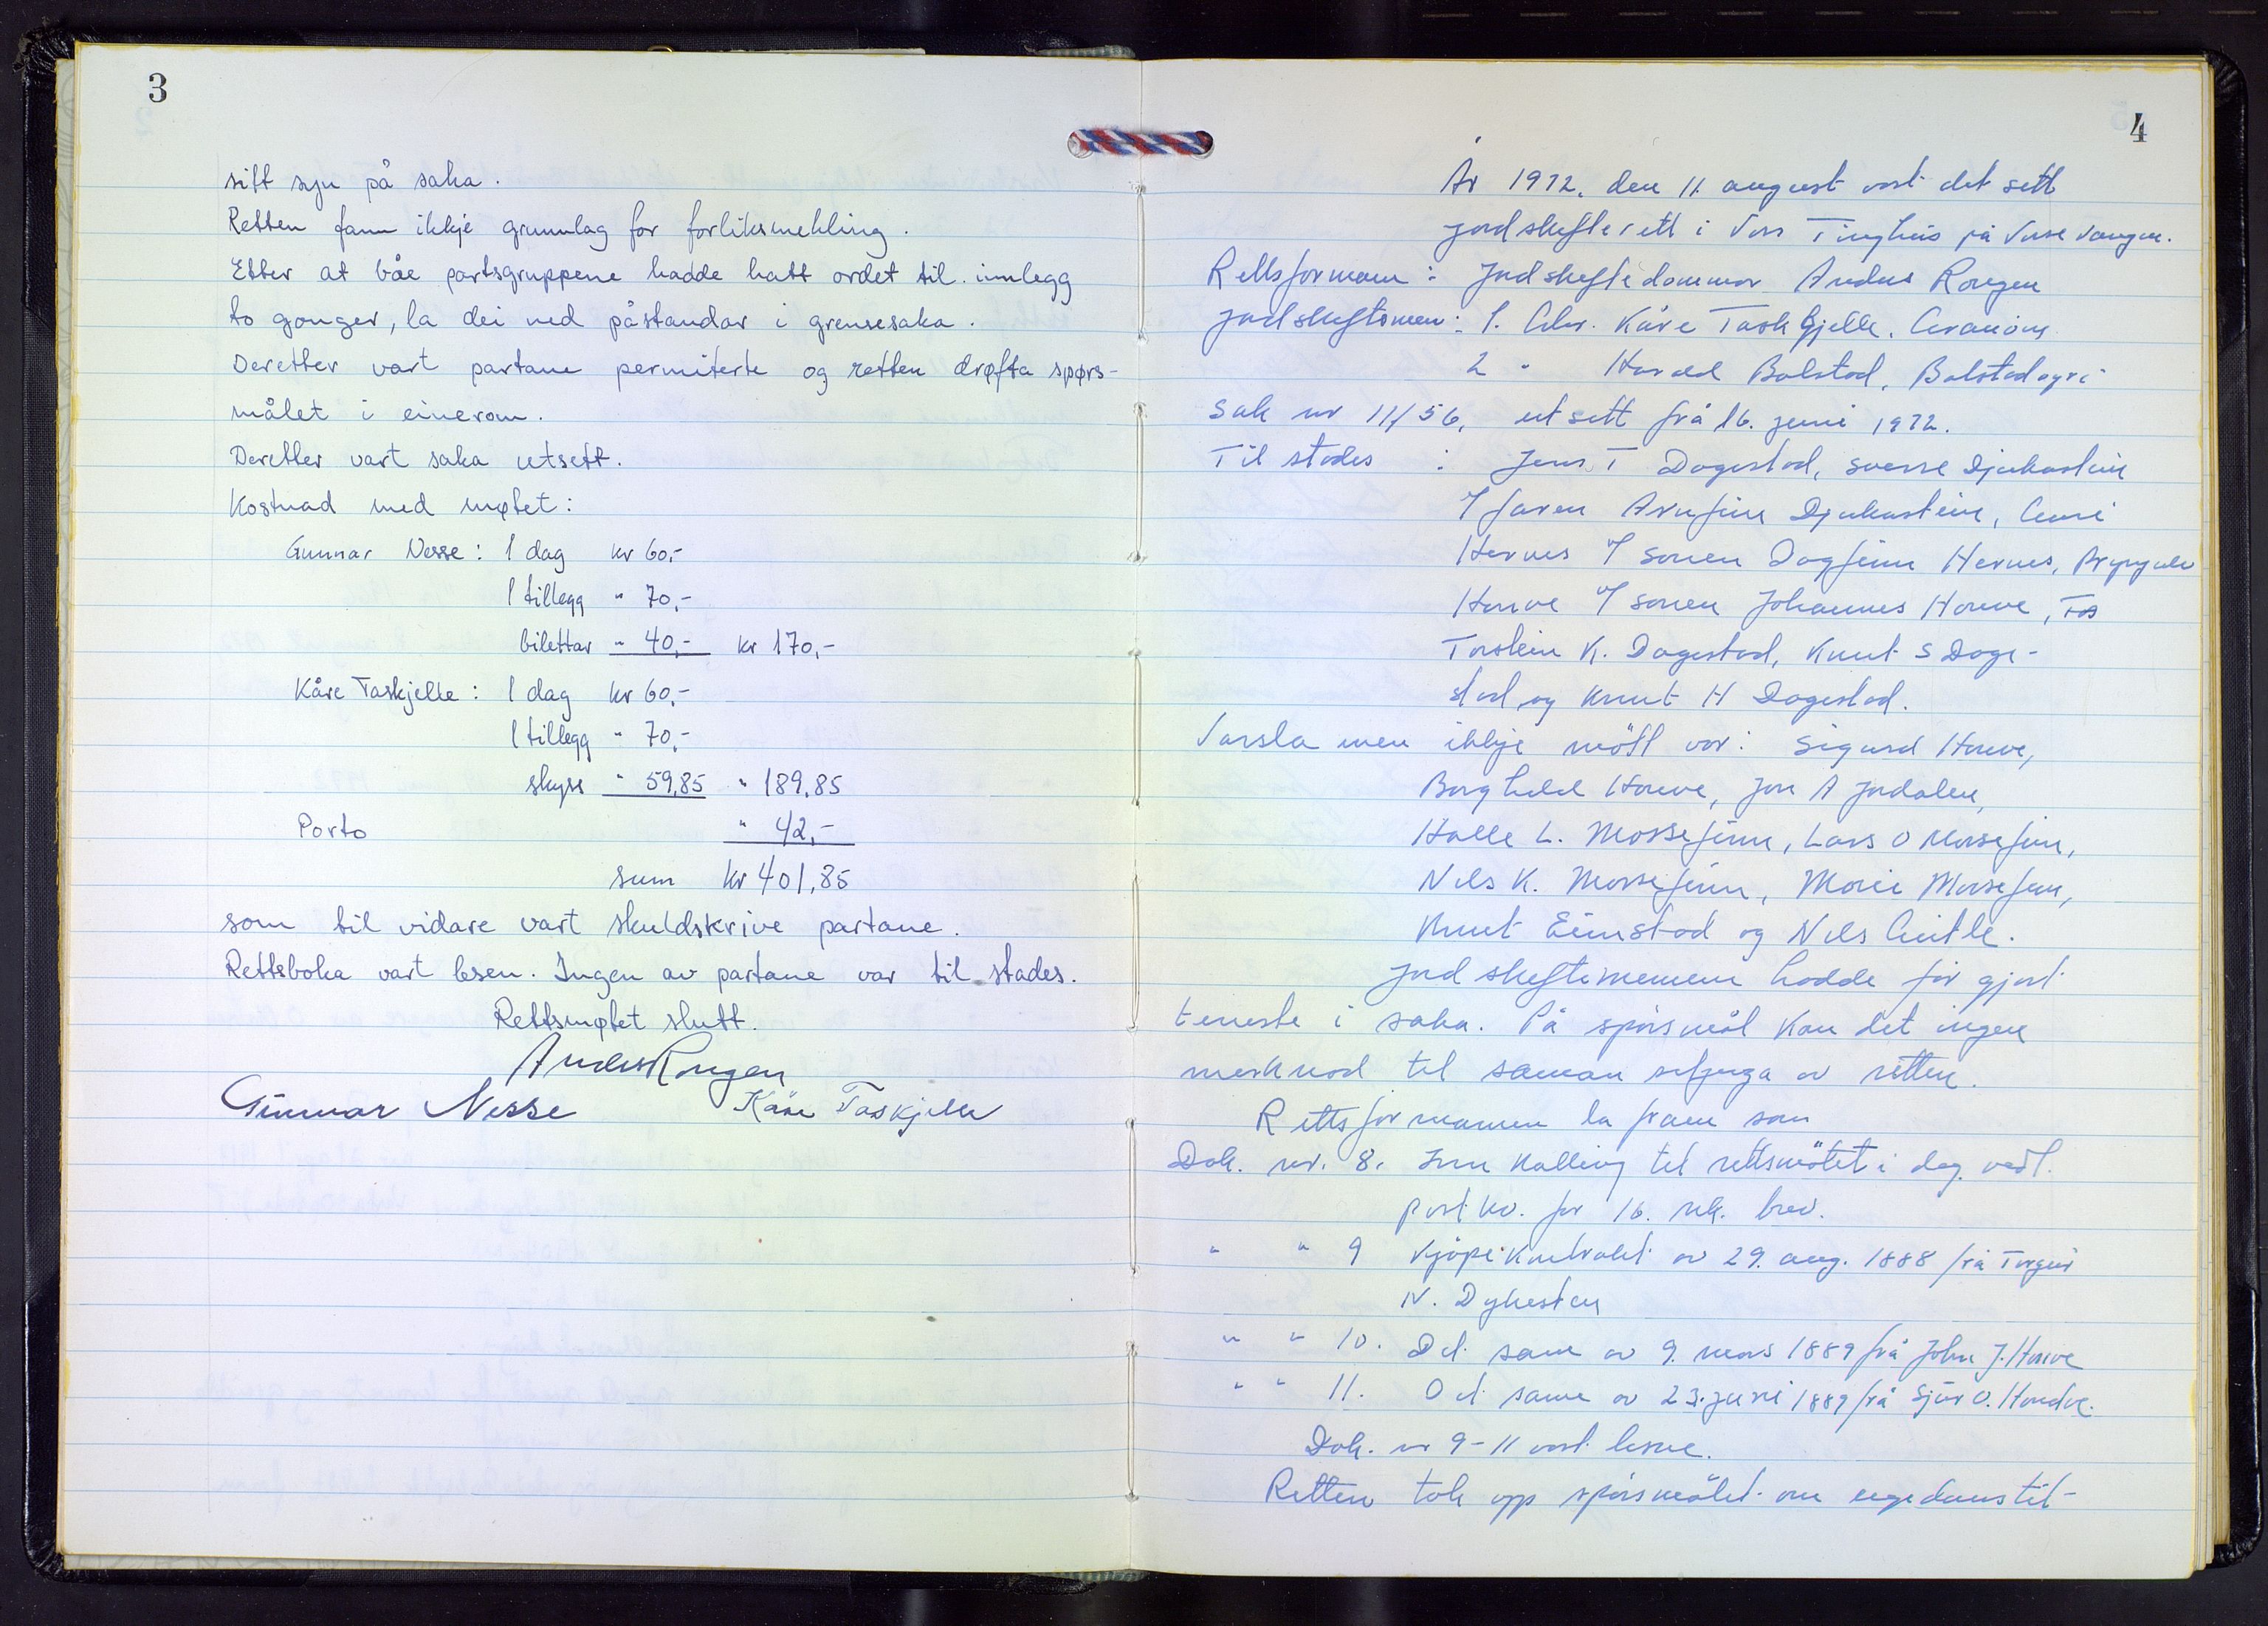 3
sitt syn på saka.
Retten fann ikkje grunnlag for forliksmekling.
Etter at båe partsgruppene hadde hatt ordet til innlegg
to gonger, la dei ned påstandar i grensesaka.
Deretter vart partane permiterte og retten drøfta spørs-
målet i einerom.
Deretter vart saka utsett.
Kostnad med møtet:
Gunnar Nesse: 1 dag kr 60,-
1 tillegg " 70,-
bilettar " 40,- kr 170,-
Kåre Taskjelle: 1 dag kr 60,-
1 tillegg " 70,-
skyss " 59,85 " 189,85
Porto " 42,-
sum kr 401,85
som til vidare vart skuldskrive partane.
Rettsboka vart lesen. Ingen av partane var til stades.
Rettsmøtet slutt.
Anders Rongen
Gunnar Nesse Kåre Taskjelle
4
År 1972, den 11. august vart det sett
jordskifterett i Voss Tinghus på Vossevangen.
Rettsformann: Jordskiftedommar Anders Rongen
Jordskiftemenn: 1. Kåre Taskjelle, Granvin
2 " Harald Bolstad, Bolstadøyri
Sak nr 11/56, utsett frå 16. juni 1972.
Til stades : Jens T Dagestad, Sverre Djukastein
v/ faren Arnfinn Djukastein,
Hernes v/ sonen Dagfinn Hernes, Brynjulv
Honve v/ sonen Johannes Honve, To
Torstein K. Dagestad, Knut S Dage-
stad og Knut H Dagestad.
Varsla men ikkje møtt var: Sigurd Honve,
Borghild Honve, Jon A Jordalen,
Halle L. Mossefinn, Lars O Mossefinn,
Nils K. Mossefinn, Marie Mossefinn,
Knut Eimstad og Nils
Jordskiftemennene hadde før gjort
teneste i saka. På spørsmål kom det ingen
merknad til samansetjinga av retten.
Rettsformannen la fram som
Dok. nr. 8. Innkalling til rettsmøtet i dag vedl.
postkv. for 16 rek. brev.
" " 9 Kjøpekontrakt av 29. aug. 1888 frå Torgeir
N. Dykesten
" " 10. Det same av 9. mars 1889 frå John J. Honve
" " 11. Det same av 23. juni 1889 frå Sjur O. Hondve.
Dok. nr 9-11 vart lesne.
Retten tok opp spørsmålet om eigedomstil-